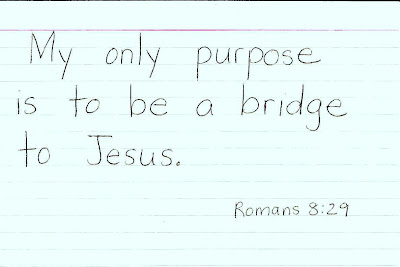 My only purpose
is to be a bridge
to Jesus.
Romans 8:29